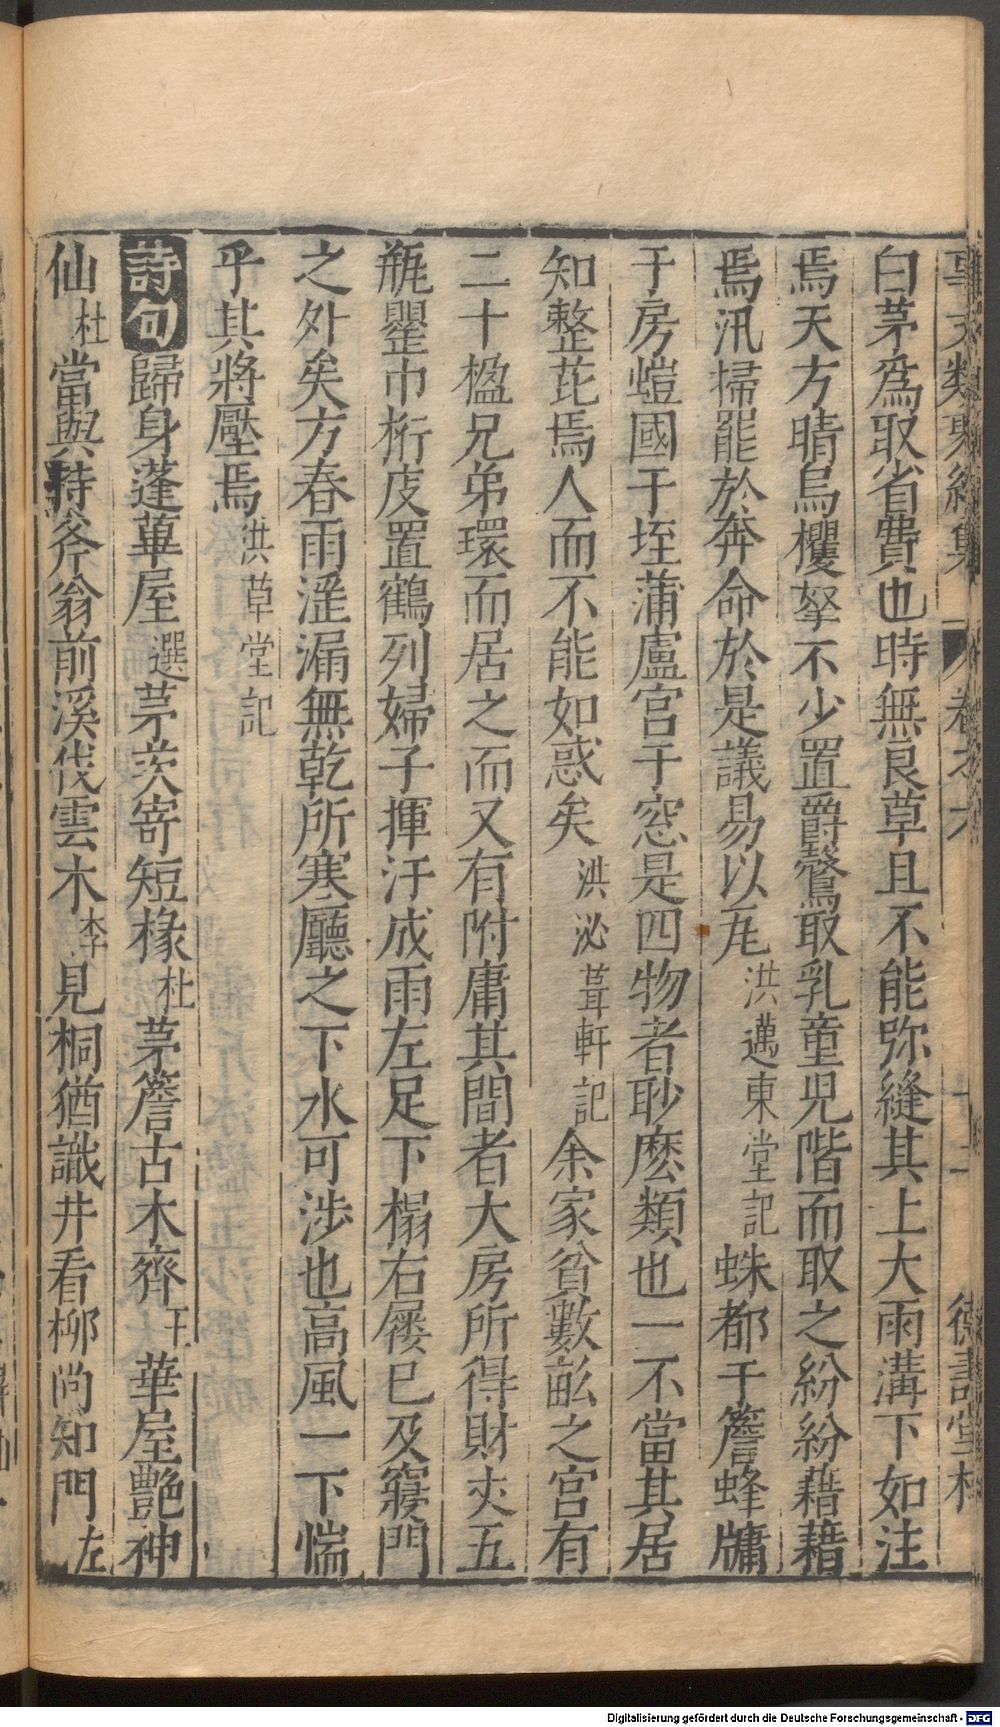 事文類聚續集 卷之六 十二 德壽堂梓
白茅爲取省費也時無良草且不能弥縫其上大雨溝下如注
焉天方晴烏攫拏不少置爵鷇取乳童児階而取之紛紛藉藉
焉汛掃罷於奔命於是議易以瓦洪邁東堂記蛛都于簷蜂牗
于房螘國于垤蒲盧宮于窓是四物者眇麽類也一不當其居
知整茈焉人而不能如惑矣洪泌葺軒記余家貧數畝之宮有
二十楹兄弟環而居之而又有附庸其間者大房所得財夾五
瓶罌巾桁庋置鶴列婦子揮汗成雨左足下榻右屨已及寢門
之外矣方春雨淫漏無乾所寒廳之下水可涉也高風一下惴
乎其將壓焉洪草堂記
詩句歸身蓬蓽屋選茅茨寄短椽杜茅簷古木齊王華屋艷神
仙杜當與持斧翁前溪伐雲木李見桐猶識井看柳尚知門左
Digitalisierung gefördert durch die Deutsche Forschungsgemeinschaft - DFG